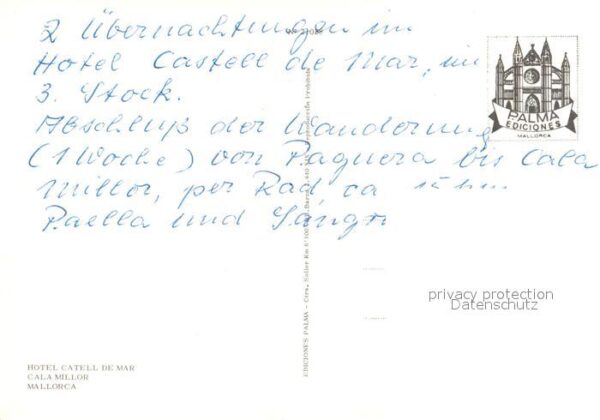 2 Übernachtungen im
Hotel Castell de Mar, im
3. Stock.
Abschluß der Wanderung
(1 Woche) von Paguera bis Cala
Millor, per Rad, ca
Paella und
PALMA
EDICIONES
MALLORCA
EDICIONES PALMA - Ctra. Soller Km
privacy protection
Datenschutz
HOTEL CATELL DE MAR
CALA MILLOR
MALLORCA